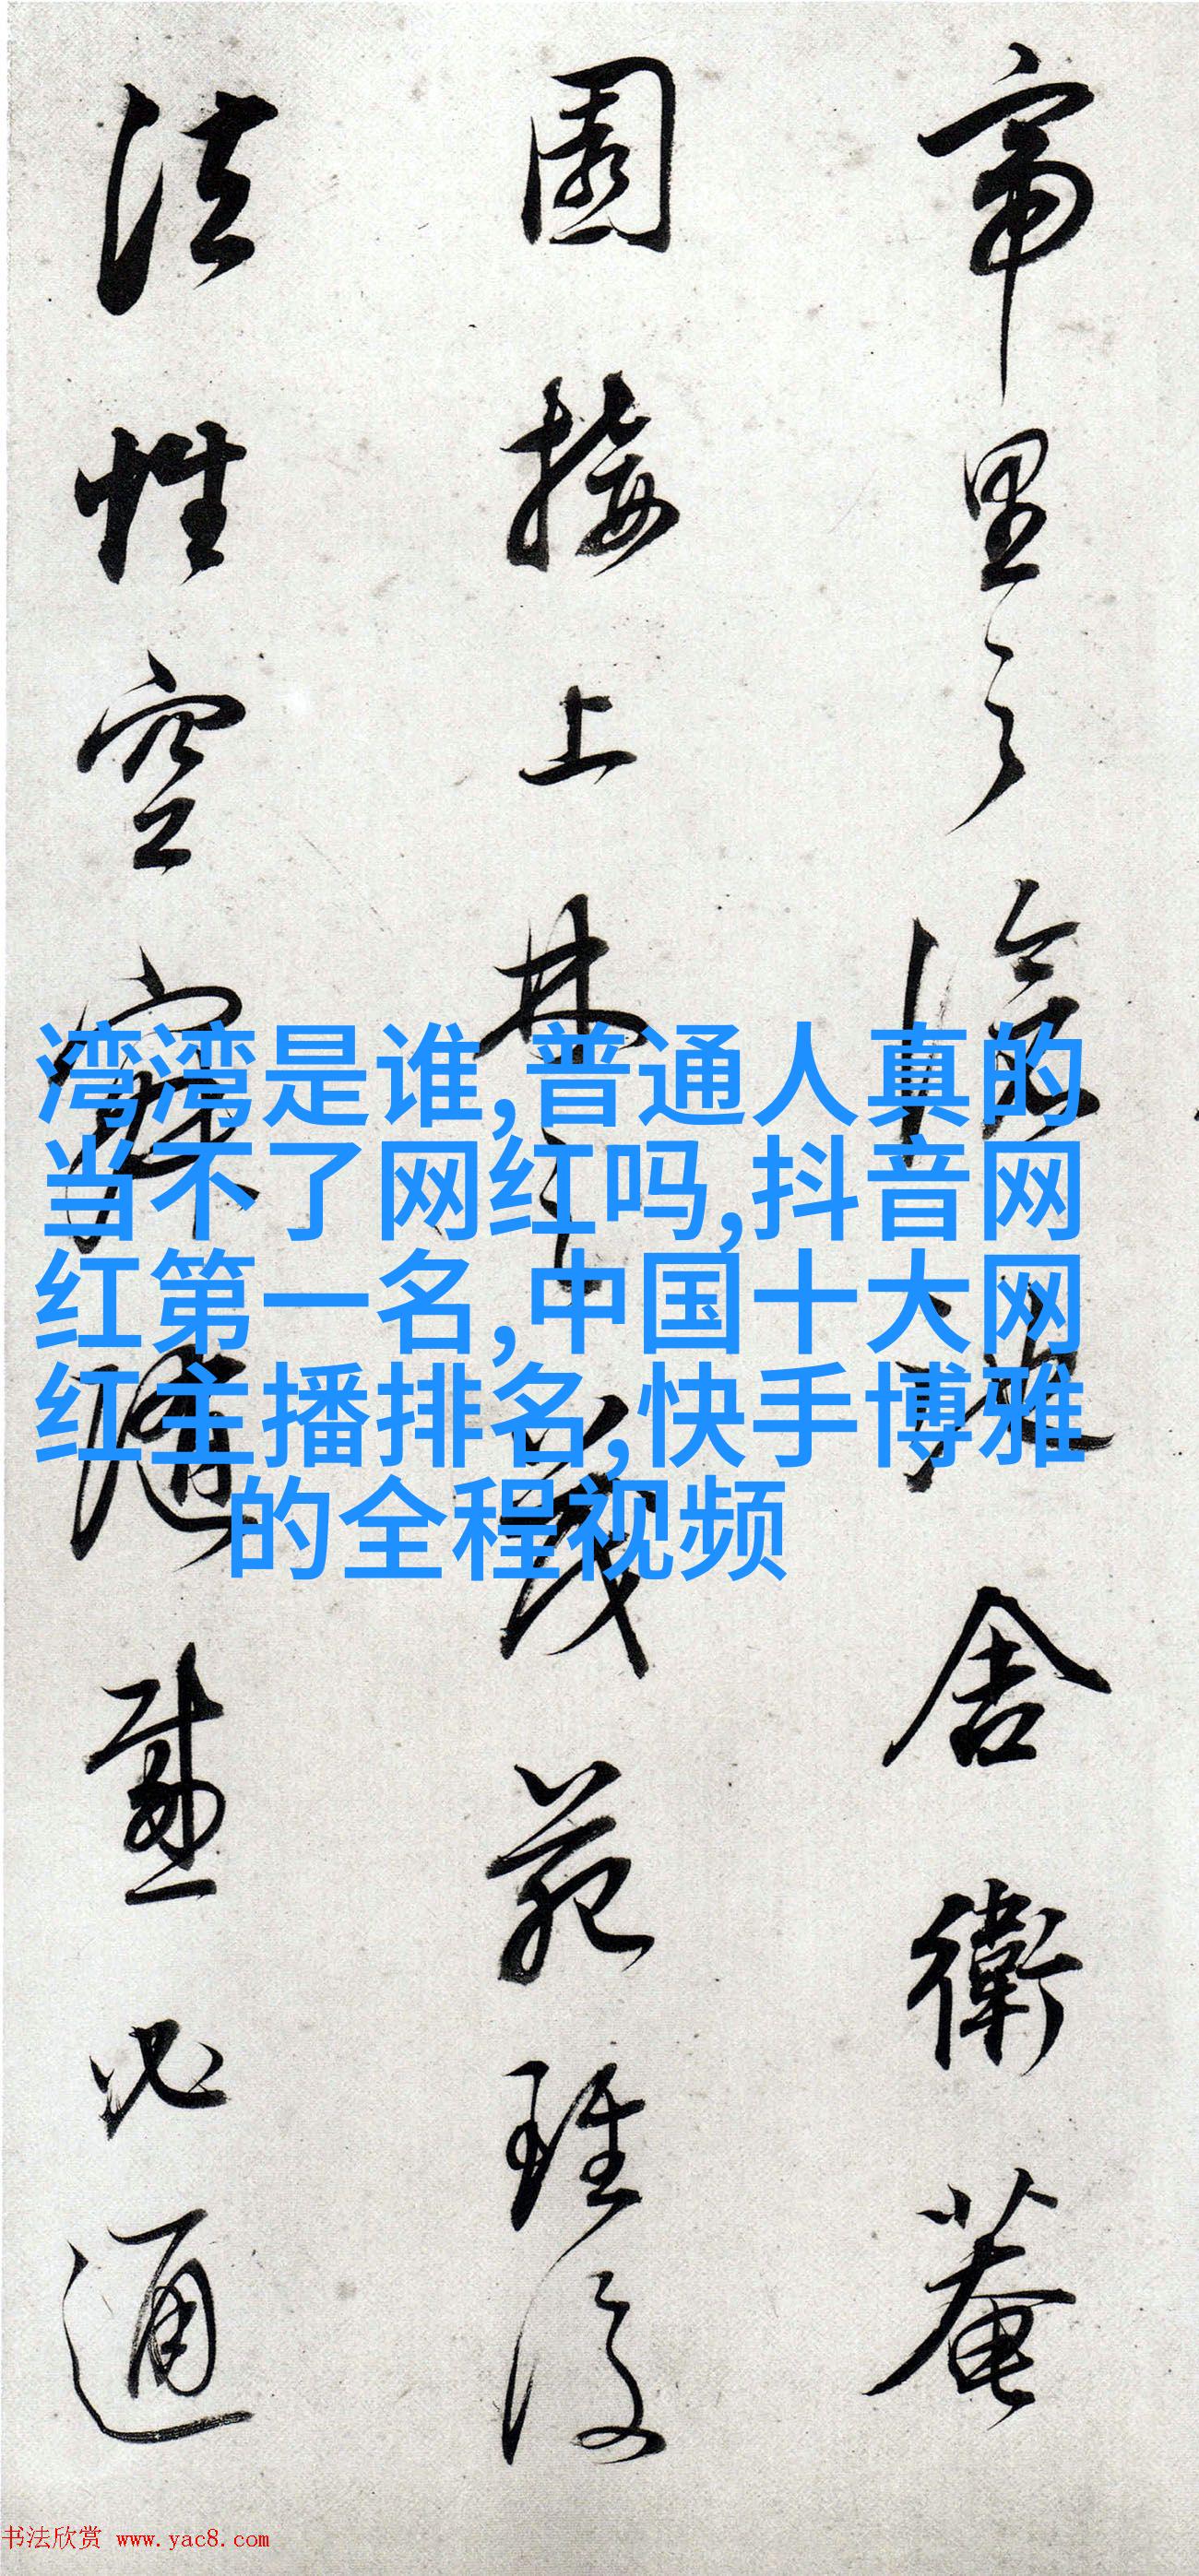 帝里之陰地舍衛菴
園接上林之茂苑雖復
法性空寂隨感必通
湾湾是谁,普通人真的
当不了网红吗,抖音网
红第一名,中国十大网
红主播排名,快手博雅
的全程视频
书法欣赏 www.yac8.com